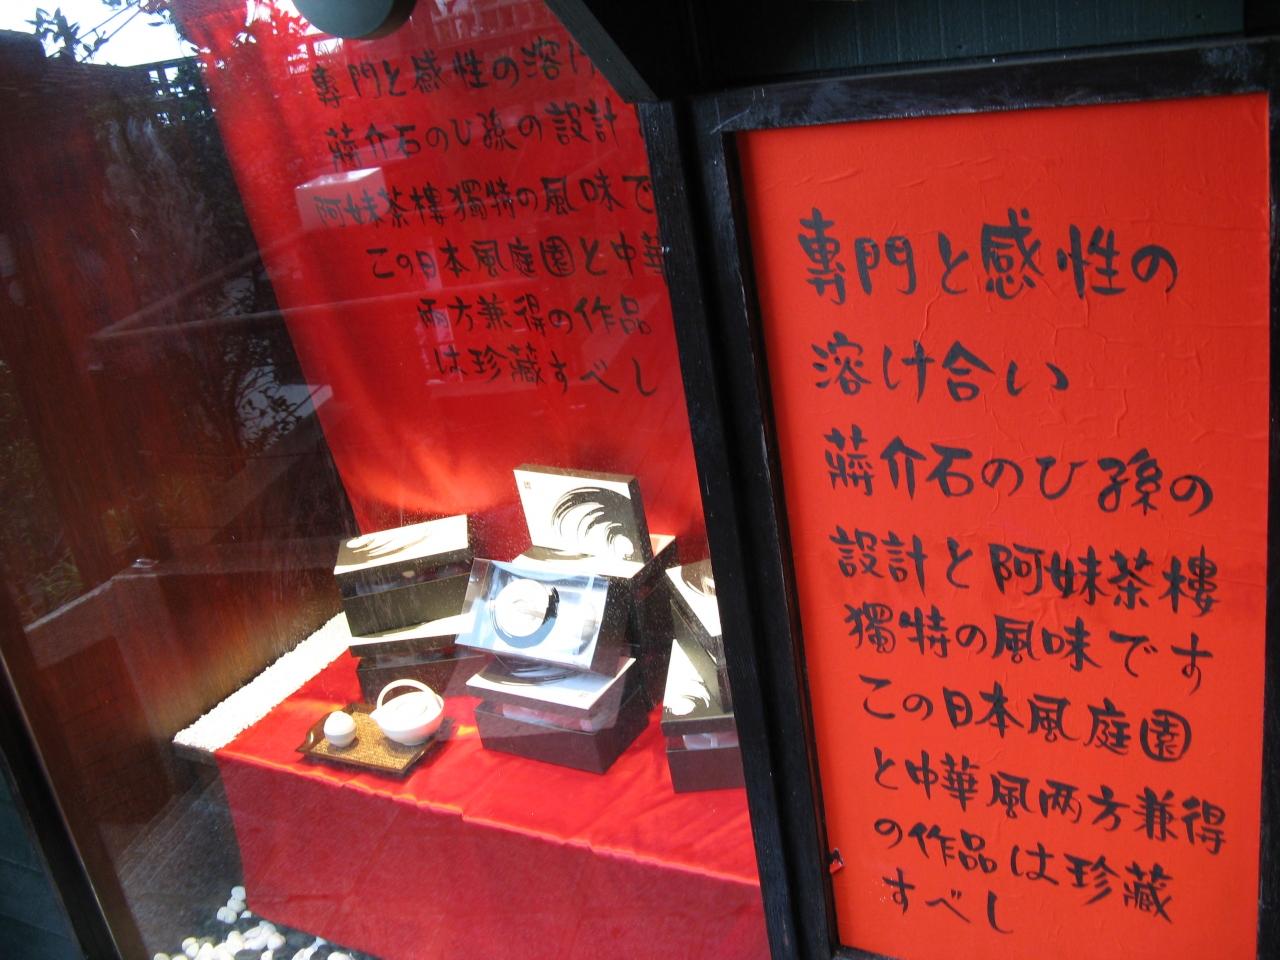 專門と感性の溶け
蔣介石のひ孫の設計
阿妹茶樓獨特の風味で
この日本風庭園と中華
両方兼得の作品
は珍藏すべし
專門と感性の
溶け合い
蔣介石のひ孫の
設計と阿妹茶樓
獨特の風味です
この日本風庭園
と中華風両方兼得
の作品は珍藏
すべし